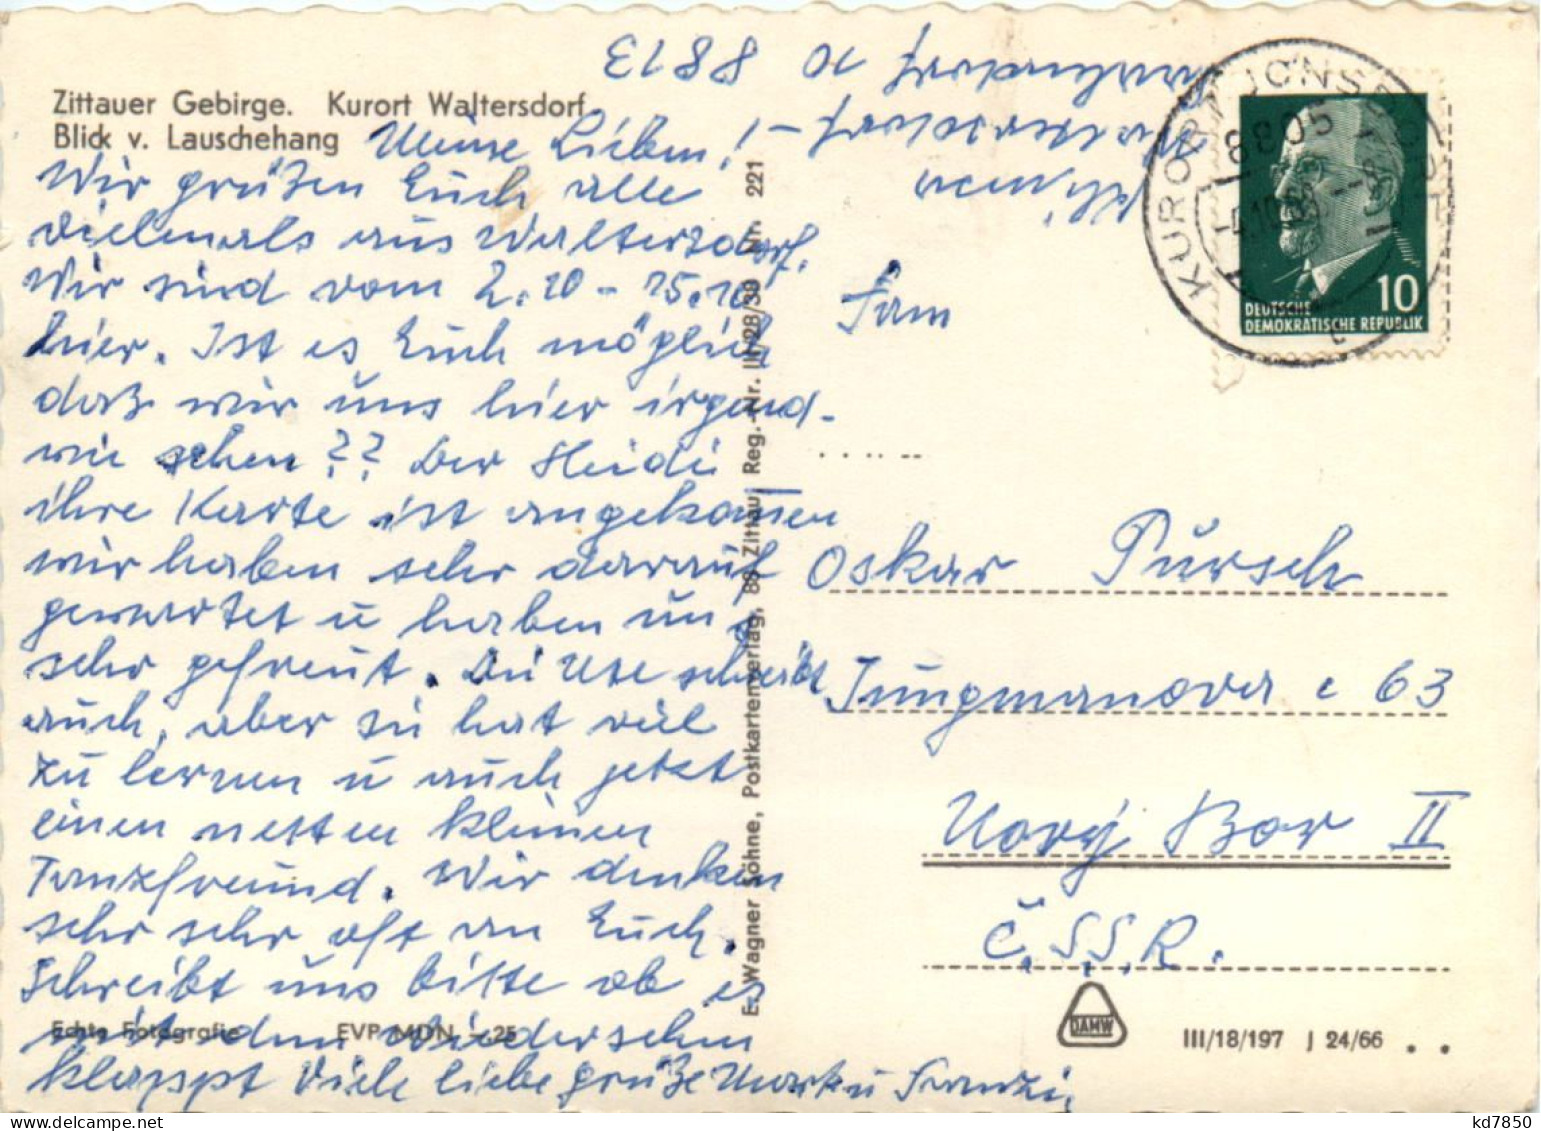 Zittauer Gebirge. Kurort Waltersdorf
Blick v. Lauschehang
Meine Lieben!
Wir grüßen Euch alle
vielemals aus Waltersdorf.
Wir sind vom 2.10 - 15.10
hier. Ist es Euch möglich
daß wir uns hier irgend-
wie sehen?? Der Heidi
ihre Karte ist angekommen
wir haben sehr darauf
gewartet u haben uns
sehr gefreut. Die Ute schreibt
auch, aber sie hat viel
zu lernen u auch jetzt
einen netten kleinen
Tanzfreund. Wir denken
sehr sehr oft an Euch.
Schreibt uns bitte ob es
mit dem Wiedersehen
klappt Viele liebe Grüße
Echte Fotografie EVP MDN -.25
E. Wagner Söhne, Postkartenverlag, 88 Zittau, Reg.-Nr. III/28/30 Nr. 221
10 8813
KURORT JONSDORF
8805
10
DEUTSCHE
DEMOKRATISCHE REPUBLIK
Fam
Oskar Pürsch
Jungmanova c 63
Nový Bor II
Č.S.S.R.
DAMW
III/18/197 J 24/66
kd7850